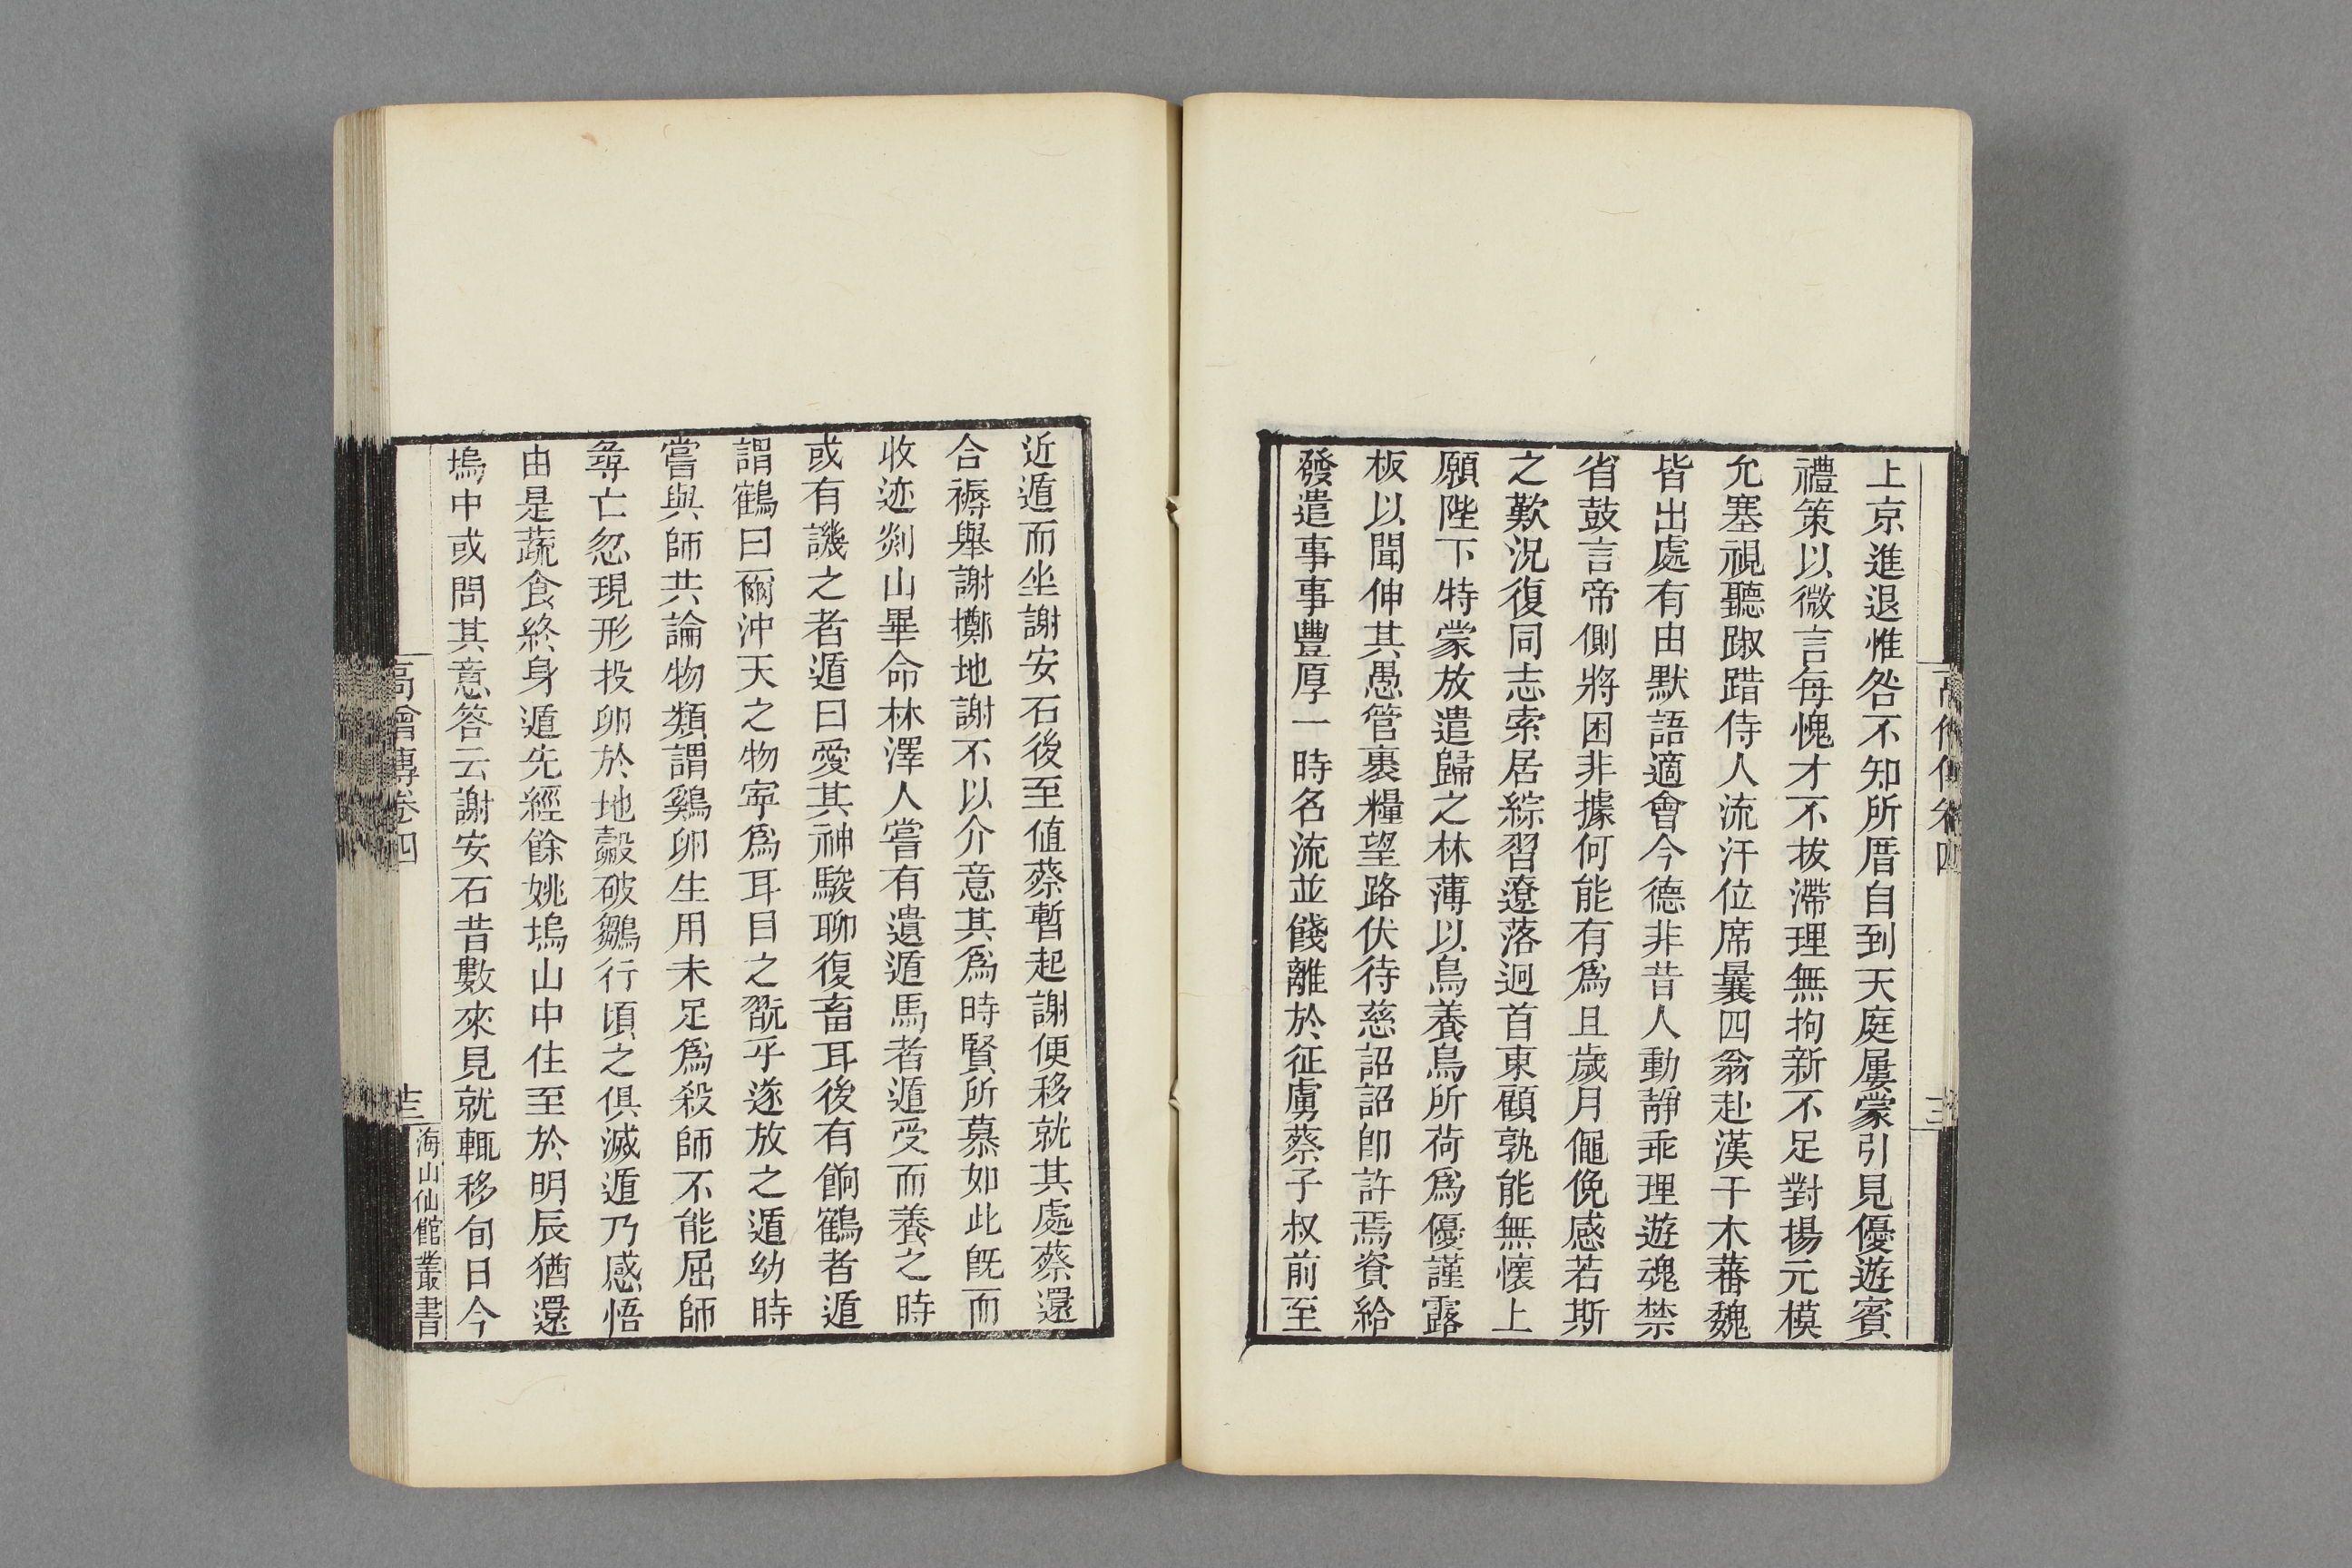 上京進退惟咎不知所厝自到天庭屢蒙引見優遊賓
禮策以微言每愧才不拔滯理無拘新不足對揚元模
允塞視聽踧踖侍人流汗位席曩四翁赴漢干木蕃魏
皆出處有由默語適會今德非昔人動靜乖理遊魂禁
省鼓言帝側將困非據何能有爲且歲月僶俛感若斯
之歎況復同志索居綜習遼落迴首東顧孰能無懷上
願陛下特蒙放遣歸之林薄以鳥養鳥所荷爲優謹露
板以聞伸其愚管裹糧望路伏待慈詔詔卽許焉資給
發遣事事豐厚一時名流並餞離於征虜蔡子叔前至
近遁而坐謝安石後至值蔡暫起謝便移就其處蔡還
合褥舉謝擲地謝不以介意其爲時賢所慕如此旣而
收迹剡山畢命林澤人嘗有遺遁馬者遁受而養之時
或有譏之者遁曰愛其神駿聊復畜耳後有餉鶴者遁
謂鶴曰爾沖天之物寜爲耳目之翫乎遂放之遁幼時
嘗與師共論物類謂鷄卵生用未足爲殺師不能屈師
尋亡忽現形投卵於地㲉破鶵行頃之俱滅遁乃感悟
由是蔬食終身遁先經餘姚塢山中住至於明辰猶還
塢中或問其意答云謝安石昔數來見就輒移旬日今
高僧傳卷四
十三
海山仙館叢書